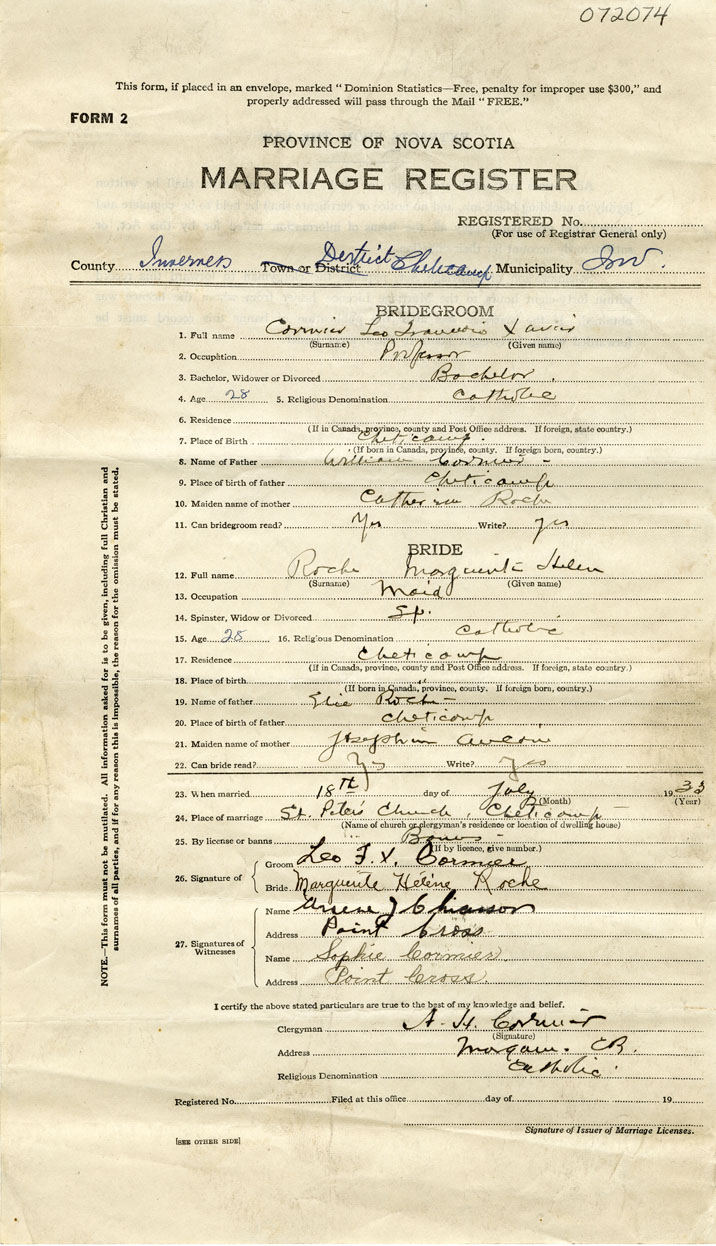 072074
This form, if placed in an envelope, marked "Dominion Statistics—Free, penalty for improper use $300," and
properly addressed will pass through the Mail "FREE."
FORM 2
PROVINCE OF NOVA SCOTIA
MARRIAGE REGISTER
REGISTERED No.
(For use of Registrar General only)
County Inverness Town or District District Cheticamp Municipality Inv.
BRIDEGROOM
1. Full name Cormier Leo Francois Xavier
(Surname) (Given name)
2. Occupation Professor
3. Bachelor, Widower or Divorced Bachelor.
4. Age 28 5. Religious Denomination Catholic
6. Residence
(If in Canada, province, county and Post Office address. If foreign, state country.)
7. Place of Birth Cheticamp.
(If born in Canada, province, county. If foreign born, country.)
8. Name of Father William Cormier -
9. Place of birth of father Cheticamp
10. Maiden name of mother Catherine Roche
11. Can bridegroom read? Yes Write? yes
BRIDE
12. Full name Roche Marguerite Helen
(Surname) (Given name)
13. Occupation Maid
14. Spinster, Widow or Divorced Sp.
15. Age 28 16. Religious Denomination Catholic
17. Residence Cheticamp
(If in Canada, province, county and Post Office address. If foreign, state country.)
18. Place of birth "
(If born in Canada, province, county. If foreign born, country.)
19. Name of father Elie Roche -
20. Place of birth of father Cheticamp
21. Maiden name of mother Josephine Aucoin
22. Can bride read? Yes Write? Yes
23. When married 18th day of July 1933
(Month) (Year)
24. Place of marriage St. Peter's Church, Cheticamp -
(Name of church or clergyman's residence or location of dwelling house)
25. By license or banns Banns -
(If by licence, give number.)
26. Signature of
Groom Leo F. X. Cormier
Bride Marguerite Hélène Roche
27. Signatures of Witnesses
Name J Chiasson
Address Point Cross
Name Sophie Cormier
Address Point Cross.
I certify the above stated particulars are true to the best of my knowledge and belief.
Clergyman A. H. Cormier
(Signature)
Address C.B.
Religious Denomination Catholic.
Registered No. Filed at this office day of 19
Signature of Issuer of Marriage Licenses.
[SEE OTHER SIDE]
NOTE.—This form must not be mutilated. All information asked for is to be given, including full Christian and
surnames of all parties, and if for any reason this is impossible, the reason for the omission must be stated.